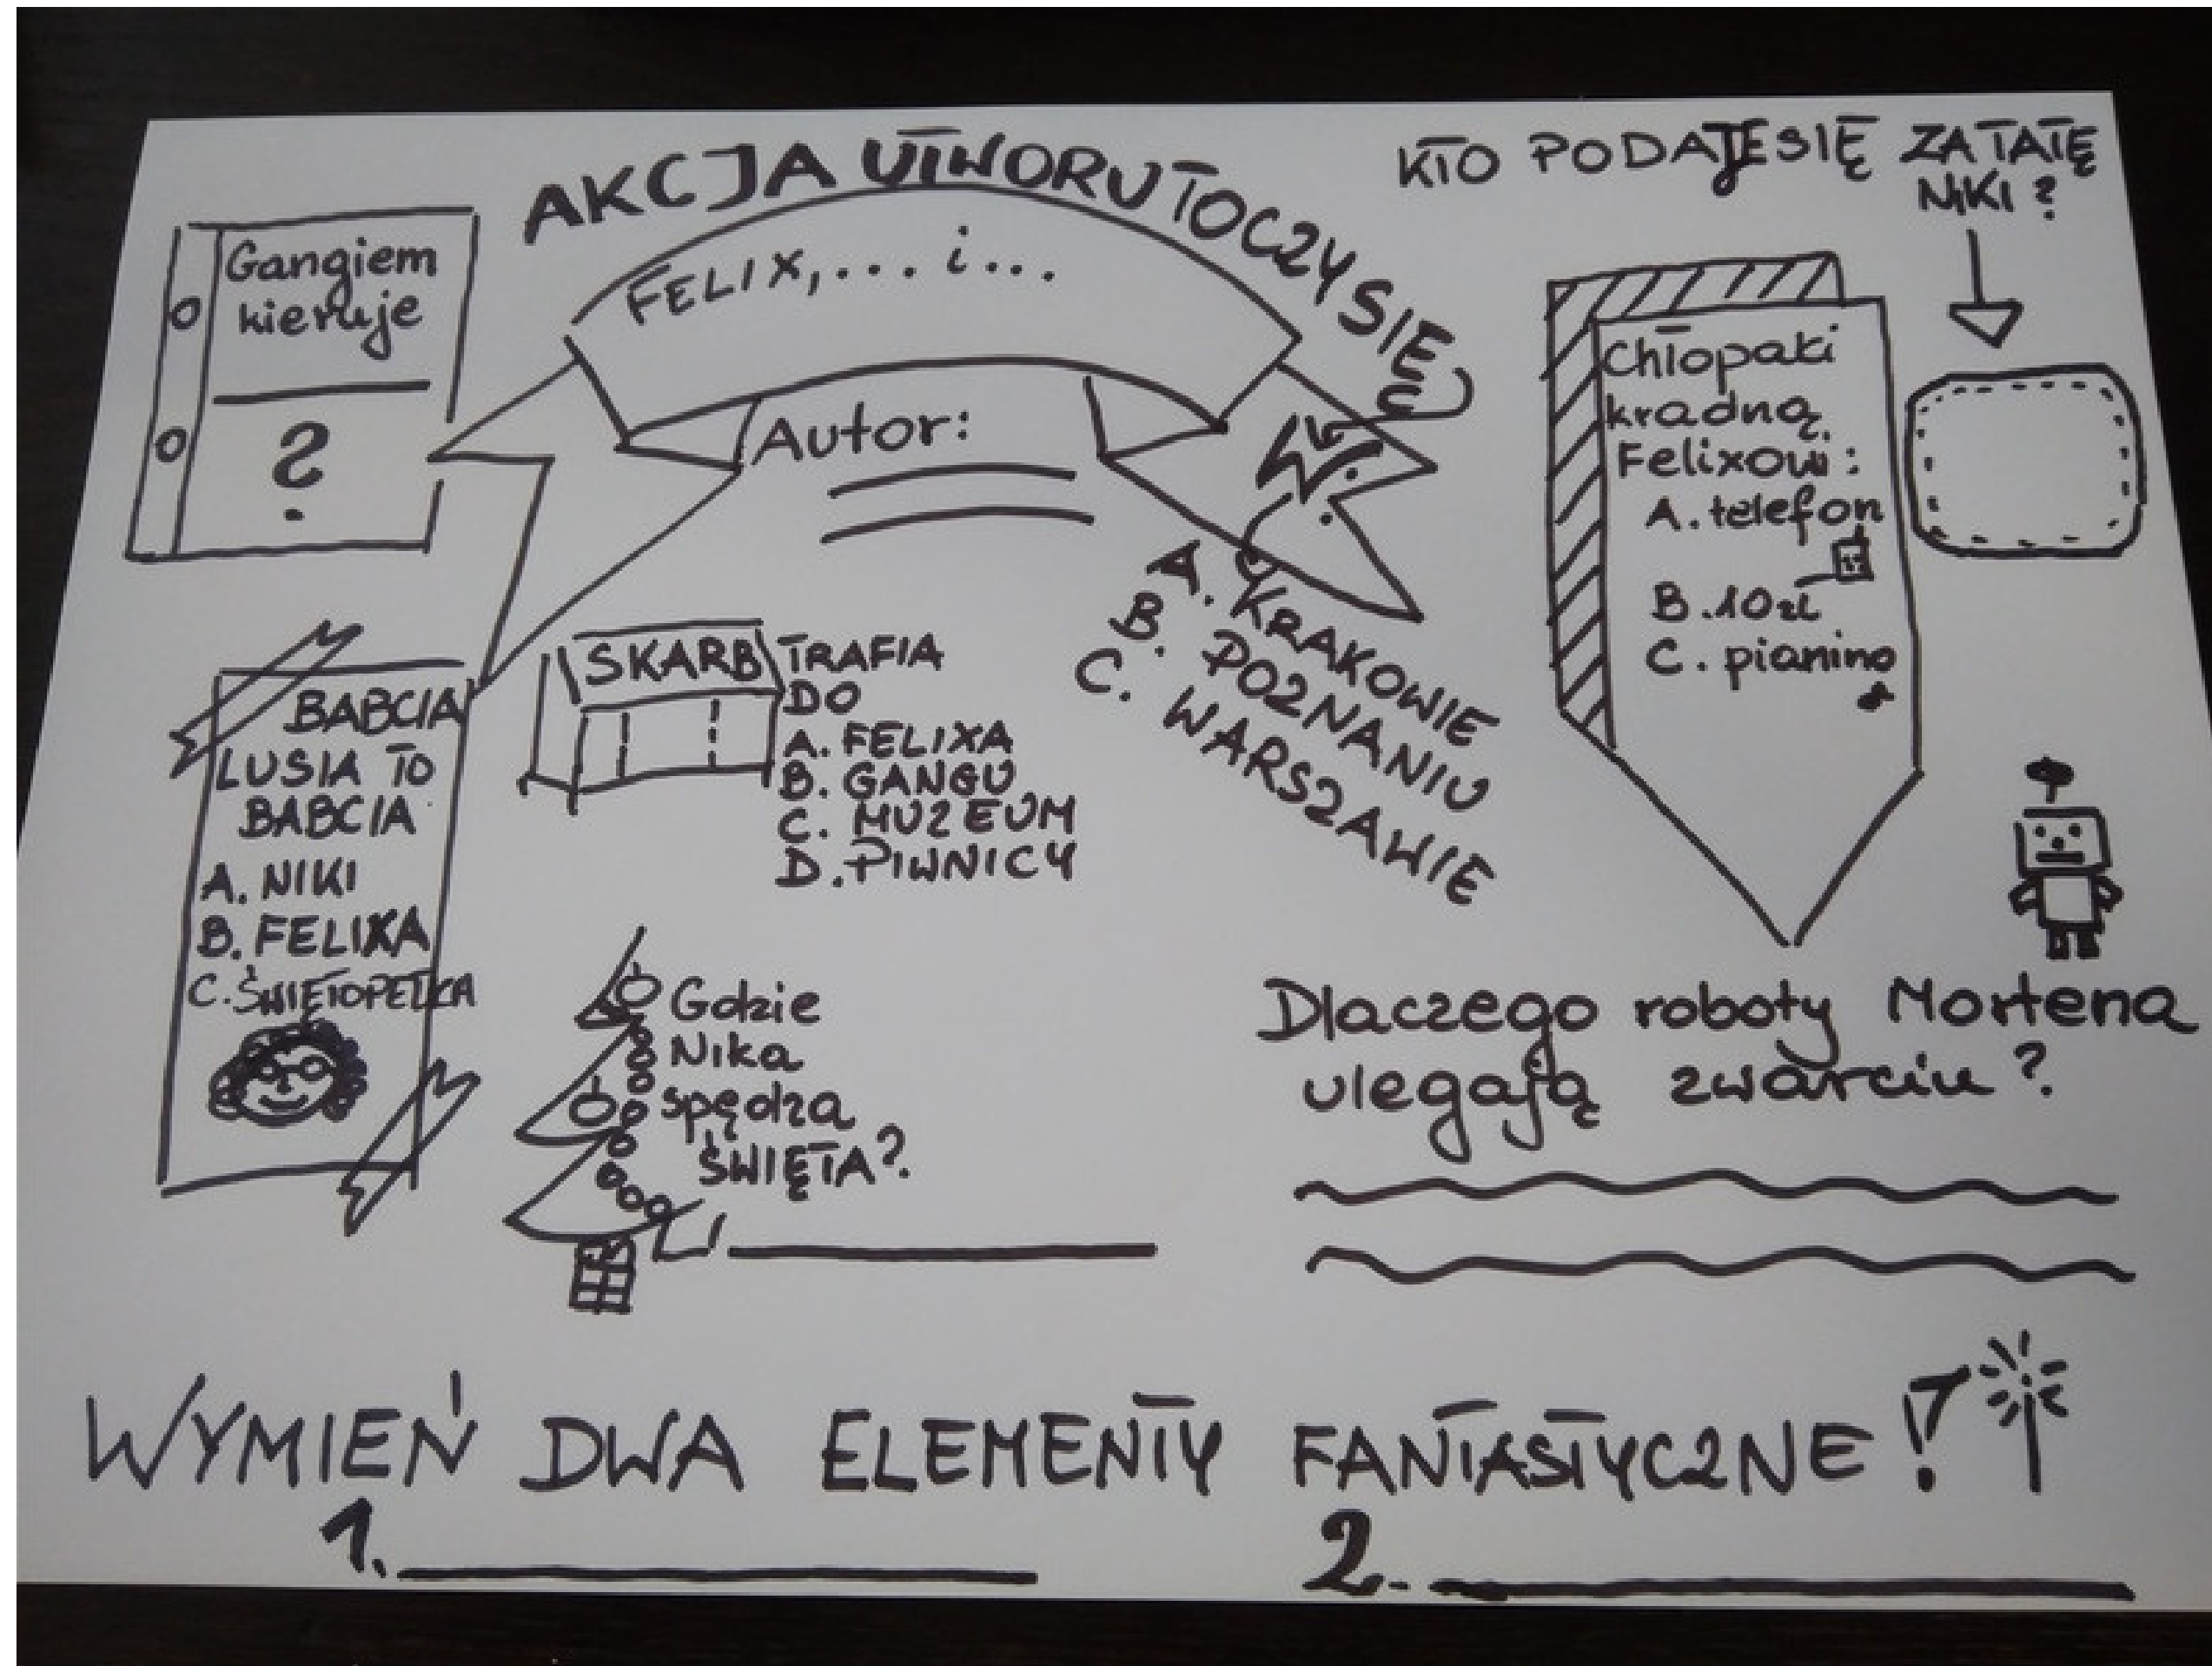 AKCJA UTWORU TOCZY SIĘ
W:
A. KRAKOWIE
B. POZNANIU
C. WARSZAWIE
FELIX, ... i ...
Autor:
Gangiem
kieruje
?
KTO PODAJE SIĘ ZA TATĘ
NIKI?
Chłopaki
kradną
Felixowi:
A. telefon
B. 10 zł
C. pianino
BABCIA
LUSIA TO
BABCIA
A. NIKI
B. FELIXA
C. ŚWIĘTOPEŁKA
SKARB TRAFIA
DO
A. FELIXA
B. GANGU
C. MUZEUM
D. PIWNICY
Gdzie
Nika
spędza
ŚWIĘTA?
Dlaczego roboty Mortena
ulegają zwarciu?
WYMIEŃ DWA ELEMENTY FANTASTYCZNE!
1.
2.